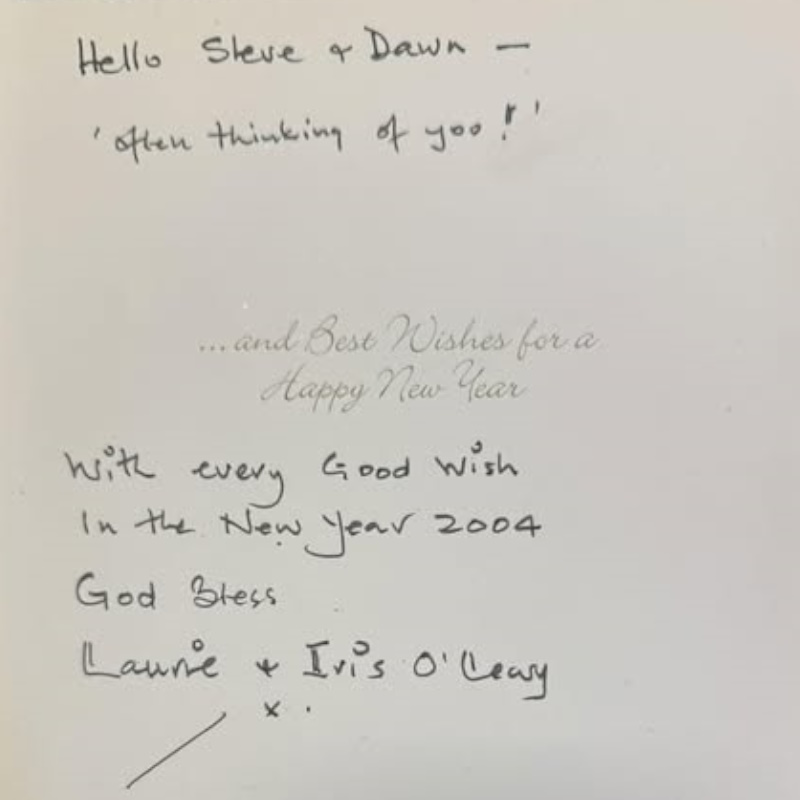 Hello Steve & Dawn —
'often thinking of you!'
...and Best Wishes for a
Happy New Year
With every Good Wish
In the New Year 2004
God Bless
Laurie & Iris O'Leary
x .